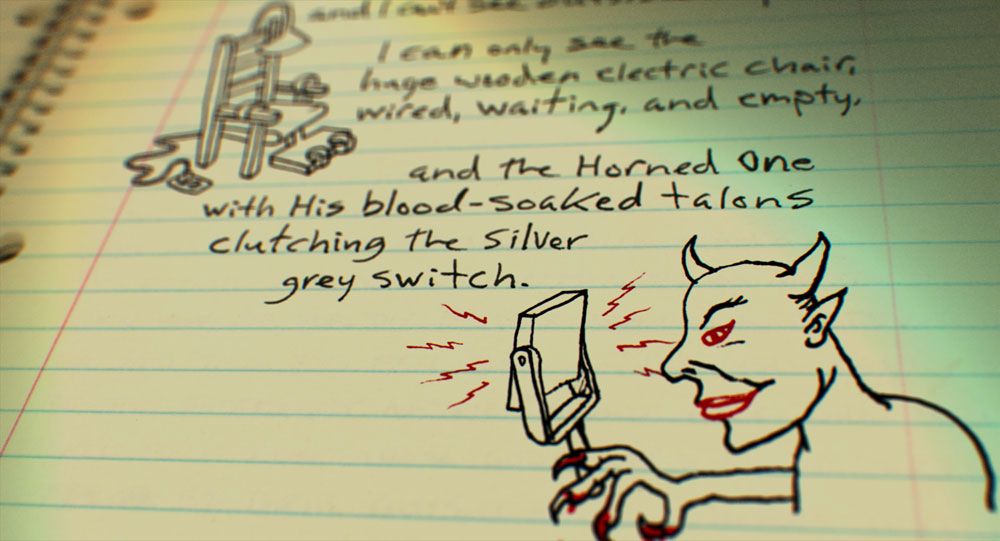 and I can't see
I can only see the
huge wooden electric chair,
wired, waiting, and empty,
and the Horned One
with His blood-soaked talons
clutching the Silver
grey switch.